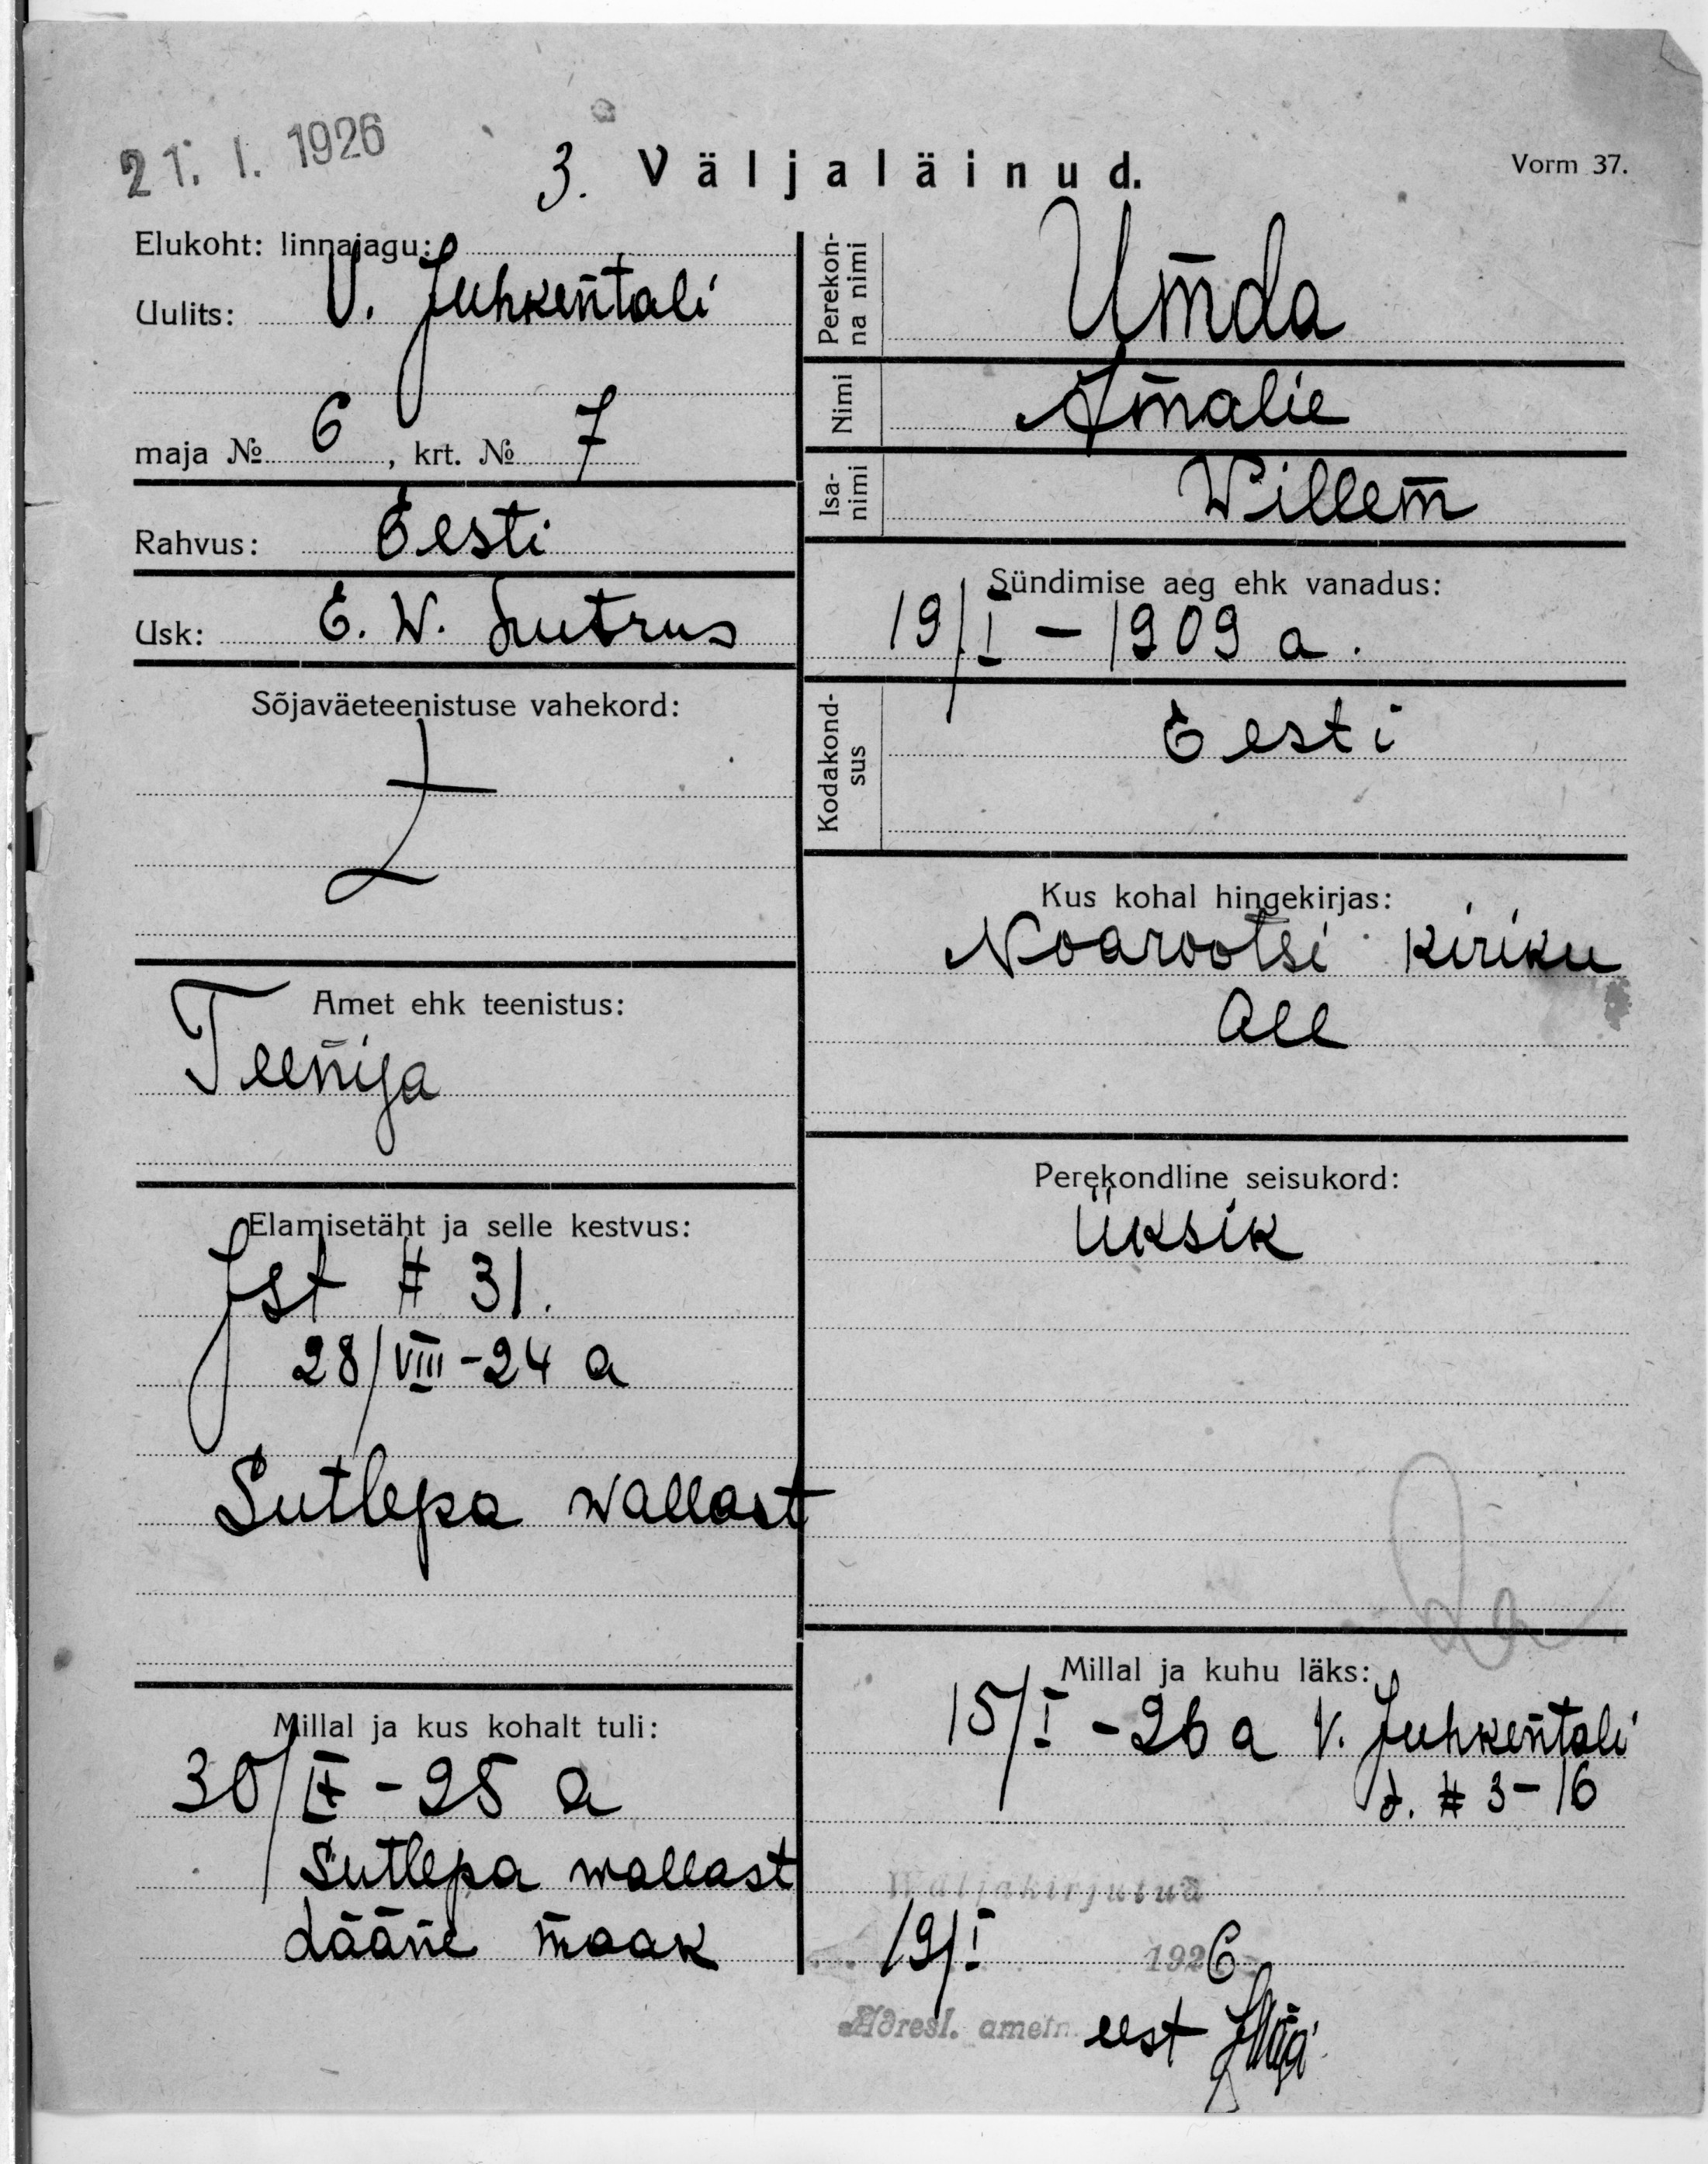 21. I. 1926
3. Väljaläinud.
Vorm 37.
Elukoht: linnajagu:
Uulits: V. Juhkentali
maja № 6, krt. № 7
Rahvus: Eesti
Usk: E. W. Lutrus
Sõjaväeteenistuse vahekord:
Amet ehk teenistus:
Teenija
Elamisetäht ja selle kestvus:
Ist # 31.
28/VIII-24 a
Sutlepa wallast
Millal ja kus kohalt tuli:
30/IX-25 a
Sutlepa wallast
Lääne maak
Perekon-
na nimi
Umda
Nimi
Amalie
Isa-
nimi
Willem
Sündimise aeg ehk vanadus:
19/I - 1909 a.
Kodakond-
sus
Eesti
Kus kohal hingekirjas:
Noarootsi kiriku
all
Perekondline seisukord:
Üksik
Millal ja kuhu läks:
15/I - 26 a V. Juhkentali
t. # 3-16
Wäljakirjutud
19/I 1926
Adresl. ametn. eest